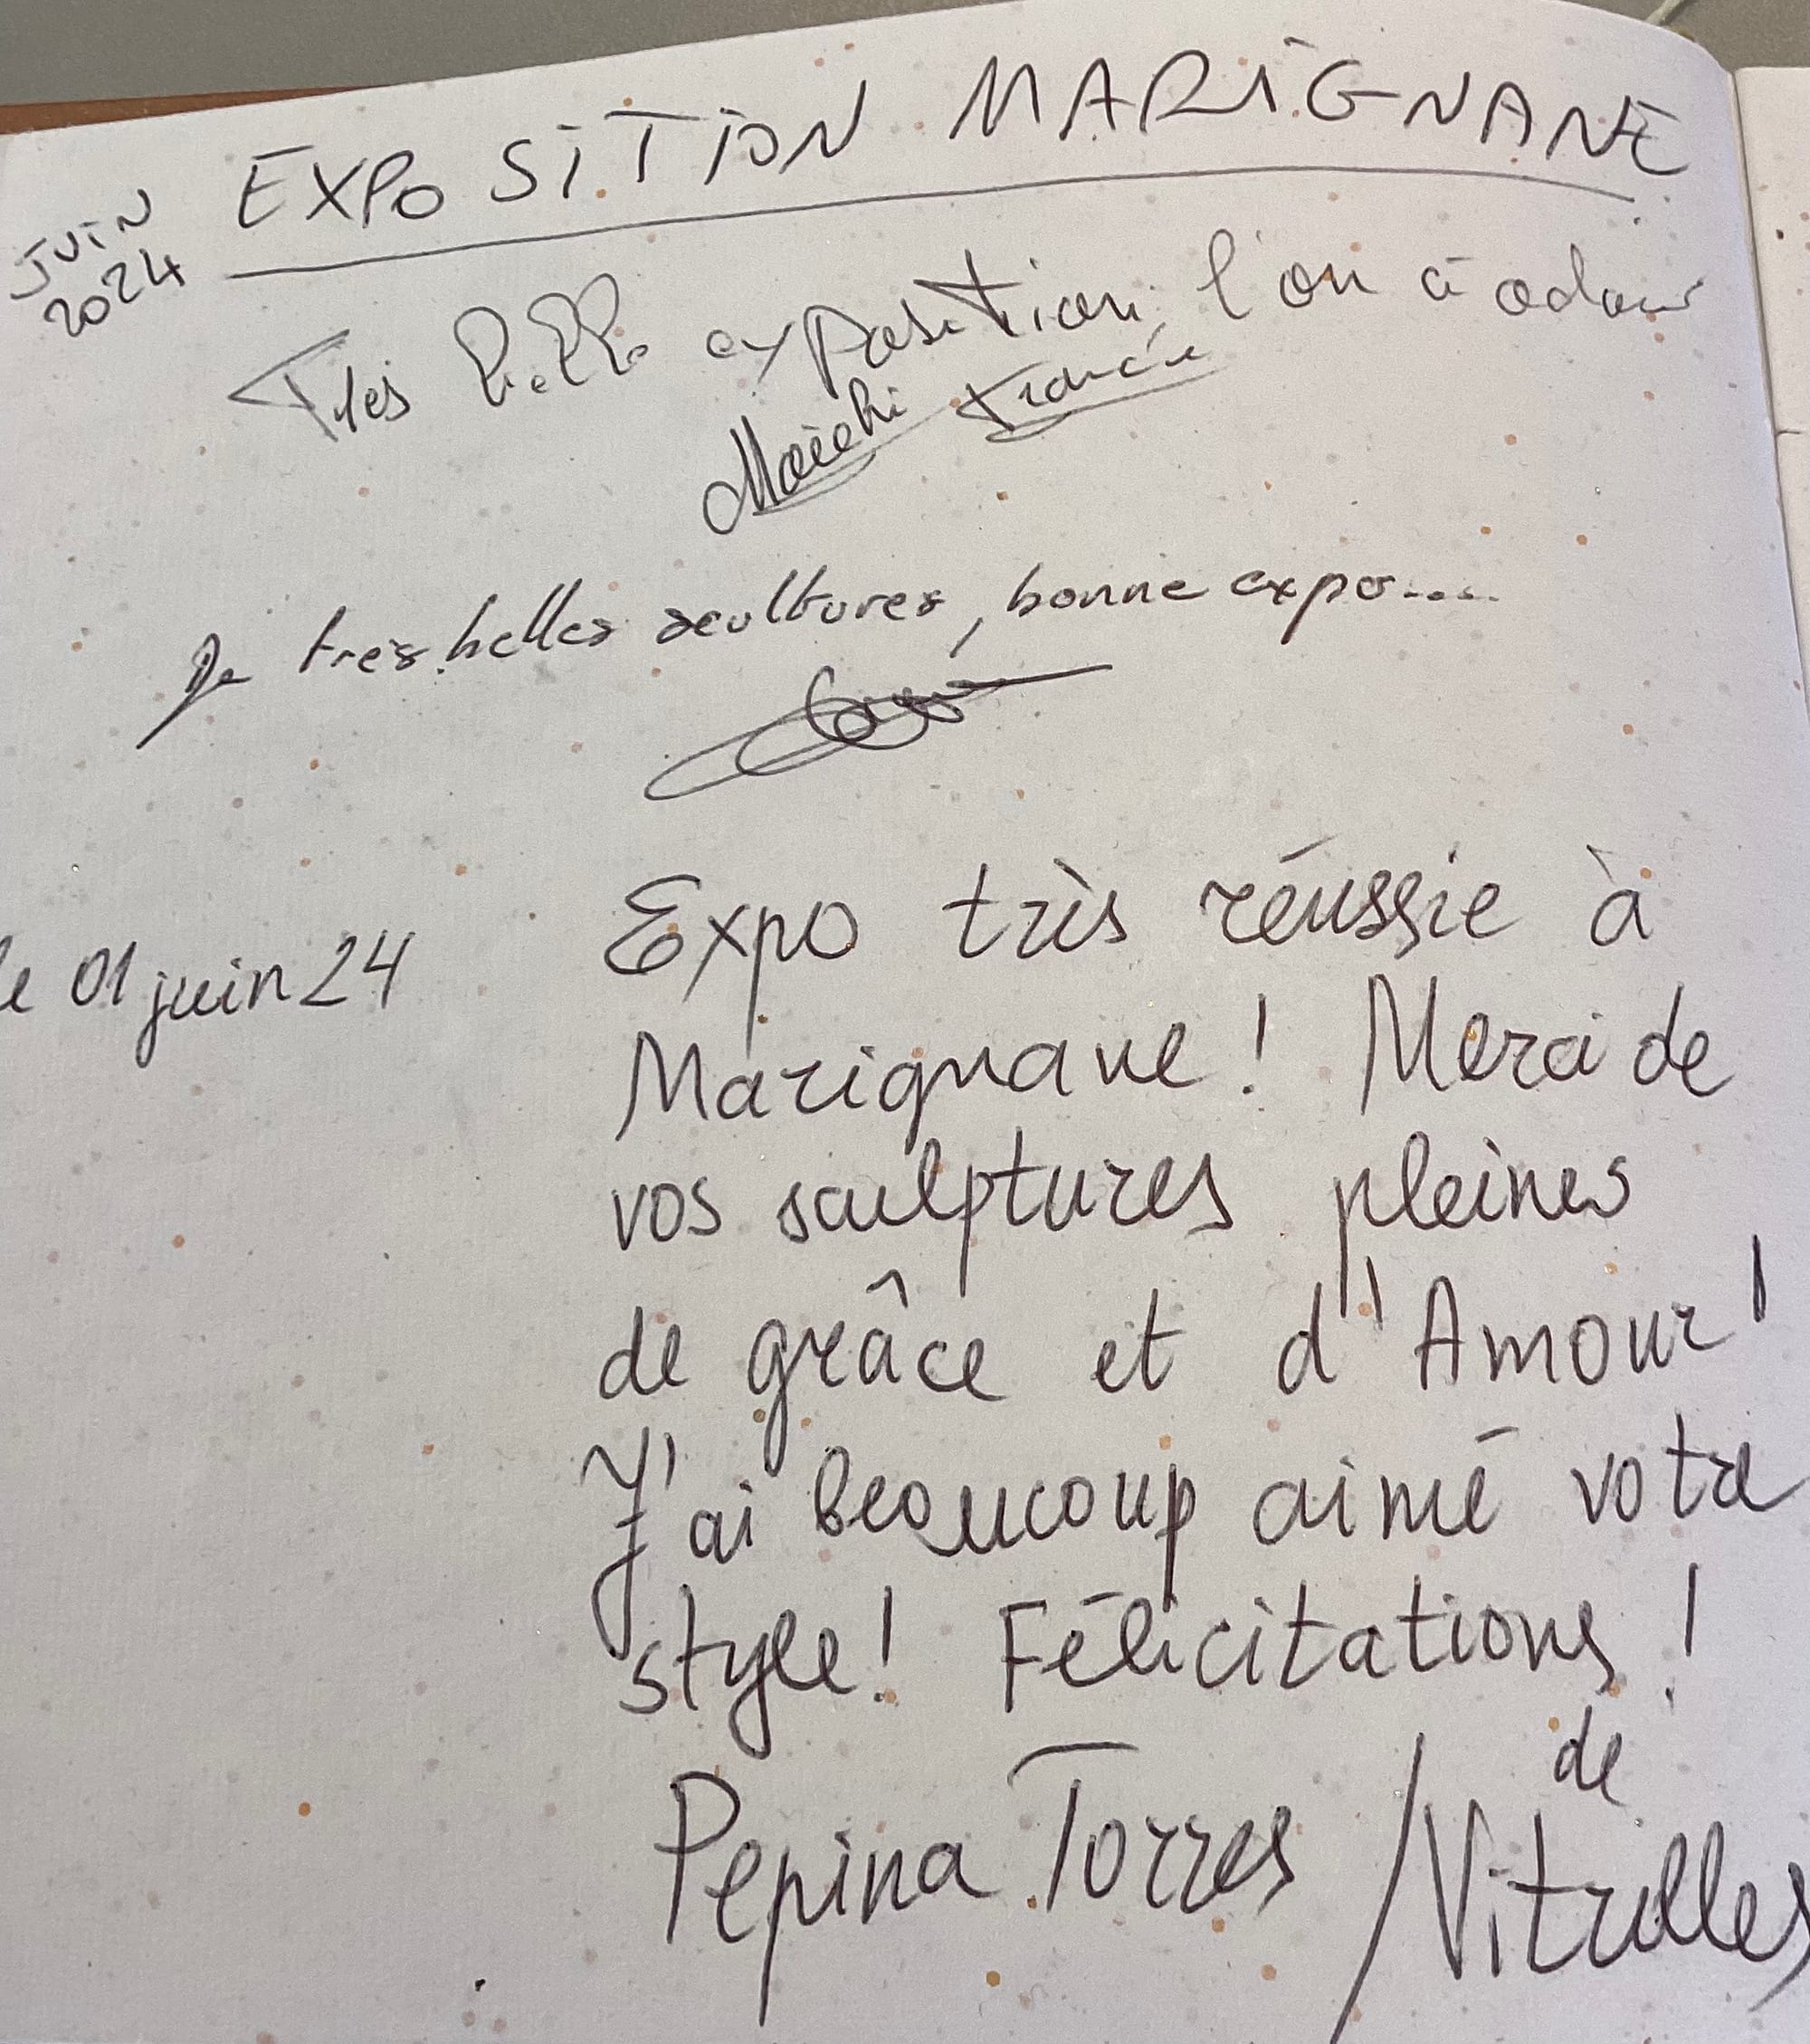 EXPOSITION MARIGNANE
JUIN
2024
Très belle exposition, l'on a adoré
De très belles scultures, bonne expo....
le 01 juin 24
Expo très réussie à
Marignane! Merci de
vos sculptures pleines
de grâce et d'Amour!
J'ai beaucoup aimé votre
style! Félicitations!
Pepina Torres / de
Vitrolles